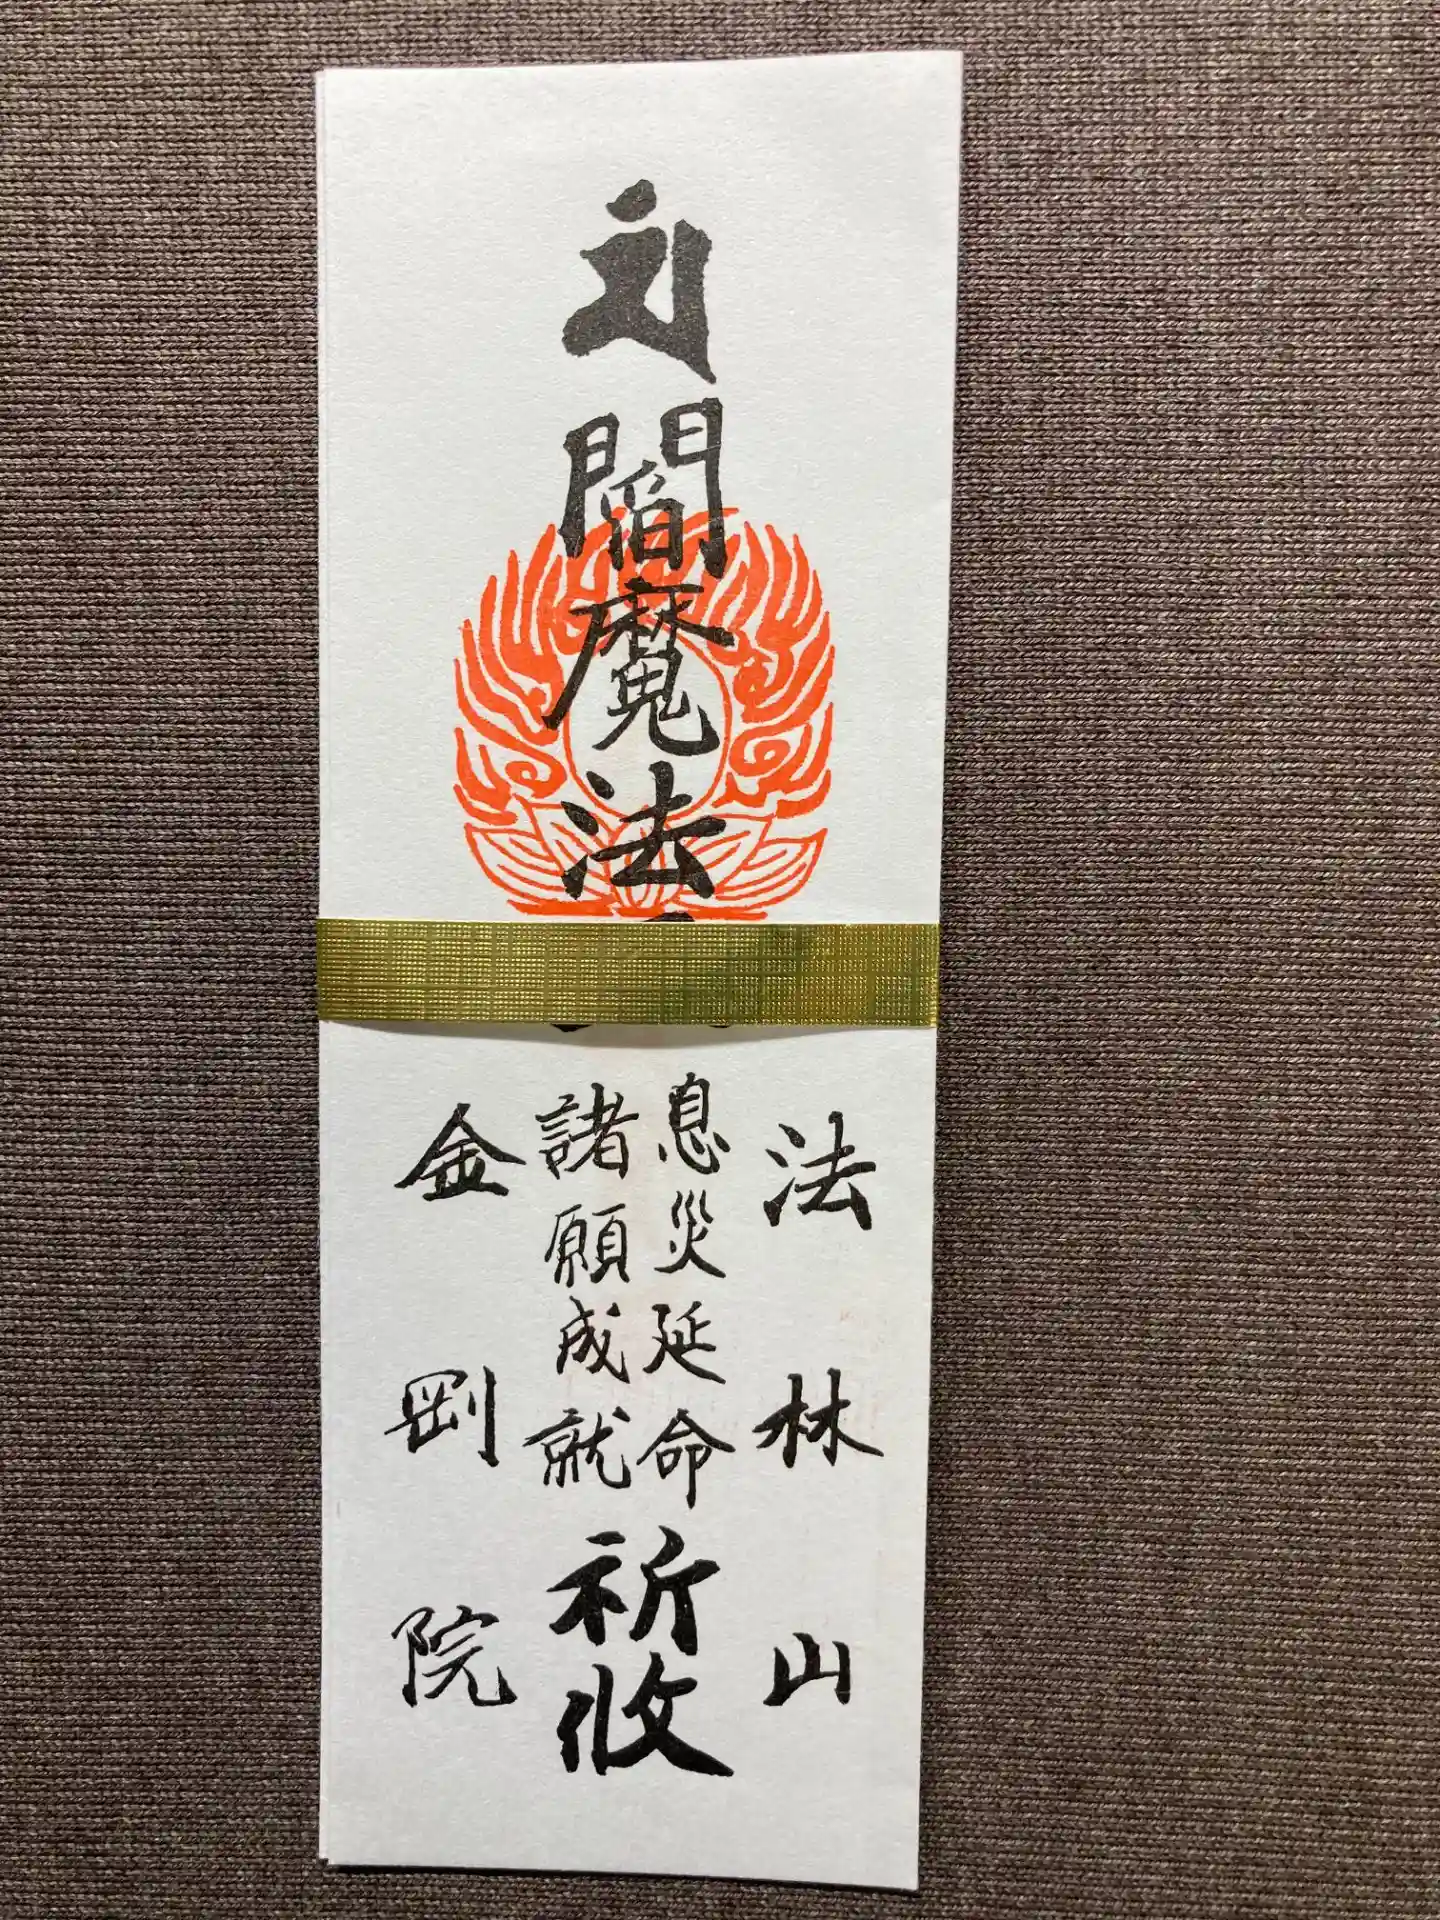 法林山
閻魔法
息災延命
諸願成就
祈攸
金剛院